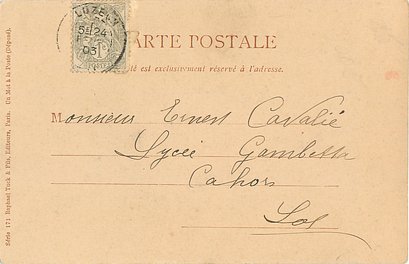 LUZECH
5E/24
03
CARTE POSTALE
té est exclusivement réservé à l'adresse.
Monsieur Ernest Cavalié
Lycée Gambetta
Cahors
Lot
Série 171 Raphael Tuck & Fils, Editeurs, Paris. Un Mot à la Poste (Déposé).